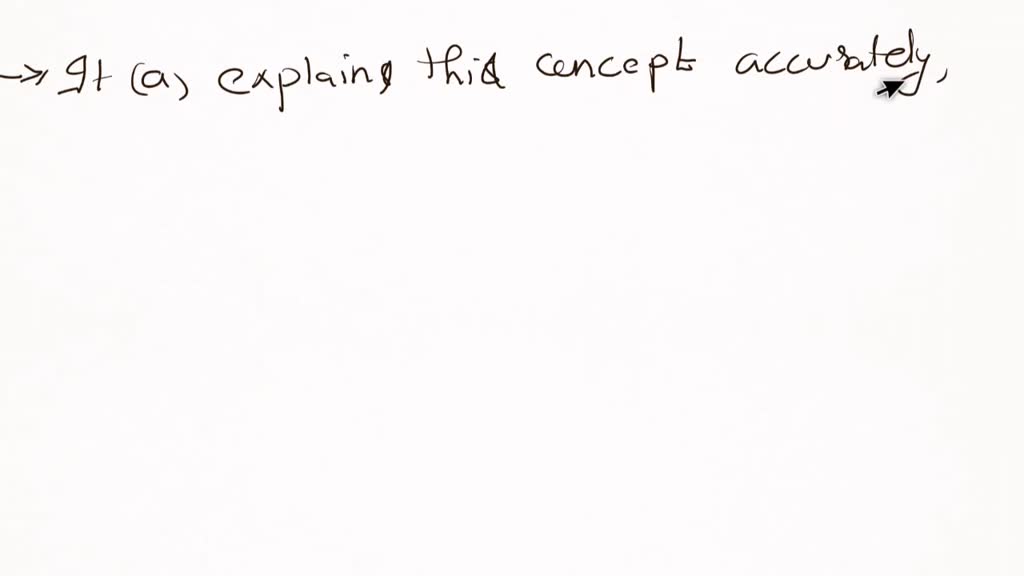 → It (a) explains this concept accurately,